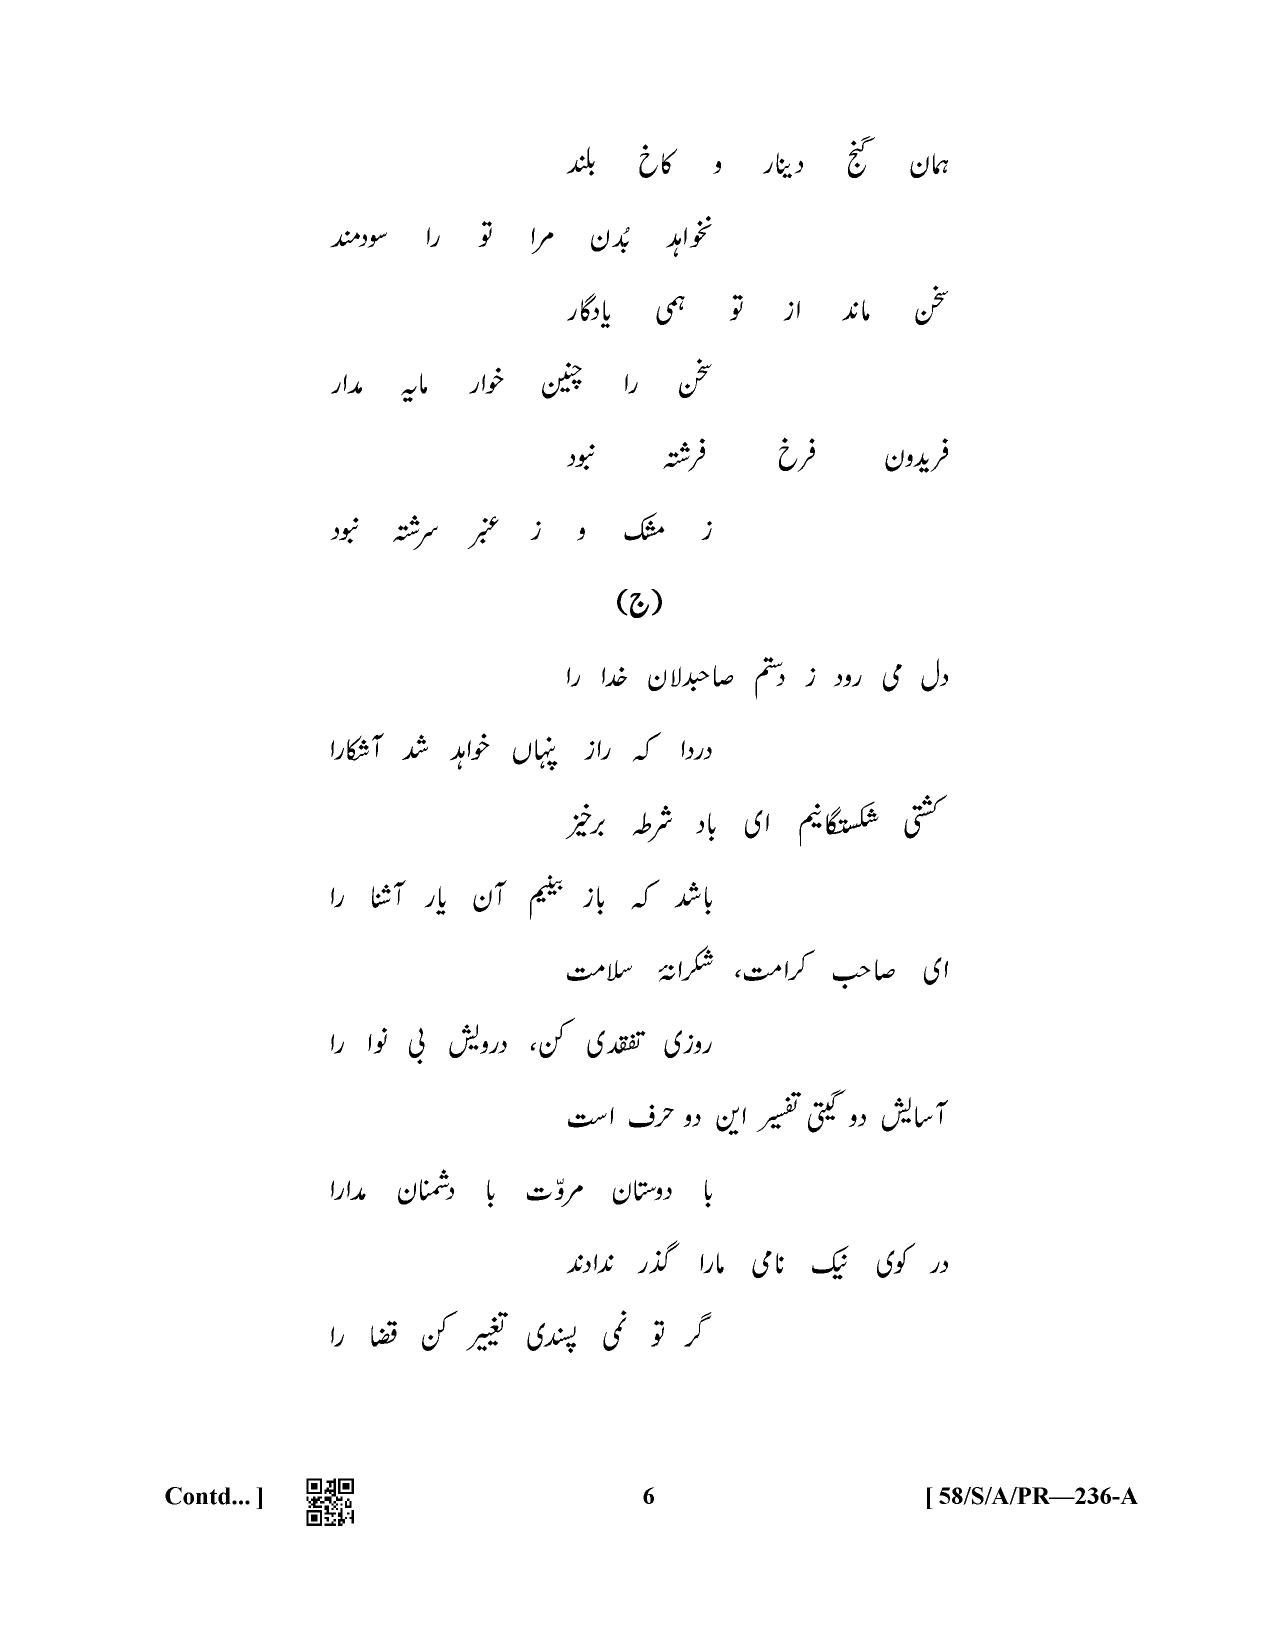 ہمان گنج دینار و کاخ بلند
نخواہد بُدن مرا تو را سودمند
سخن ماند از تو ہمی یادگار
سخن را چنین خوار مایہ مدار
فریدون فرخ فرشتہ نبود
ز مشک و ز عنبر سرشتہ نبود
(ج)
دل می رود ز دستم صاحبدلان خدا را
دردا کہ راز پنہاں خواہد شد آشکارا
کشتی شکستگانیم ای باد شرطہ برخیز
باشد کہ باز بینیم آن یار آشنا را
ای صاحب کرامت، شکرانۂ سلامت
روزی تفقدی کن، درویش بی نوا را
آسایش دو گیتی تفسیر این دو حرف است
با دوستان مروّت با دشمنان مدارا
در کوی نیک نامی مارا گذر ندادند
گر تو نمی پسندی تغییر کن قضا را
Contd... ] 6 [ 58/S/A/PR—236-A